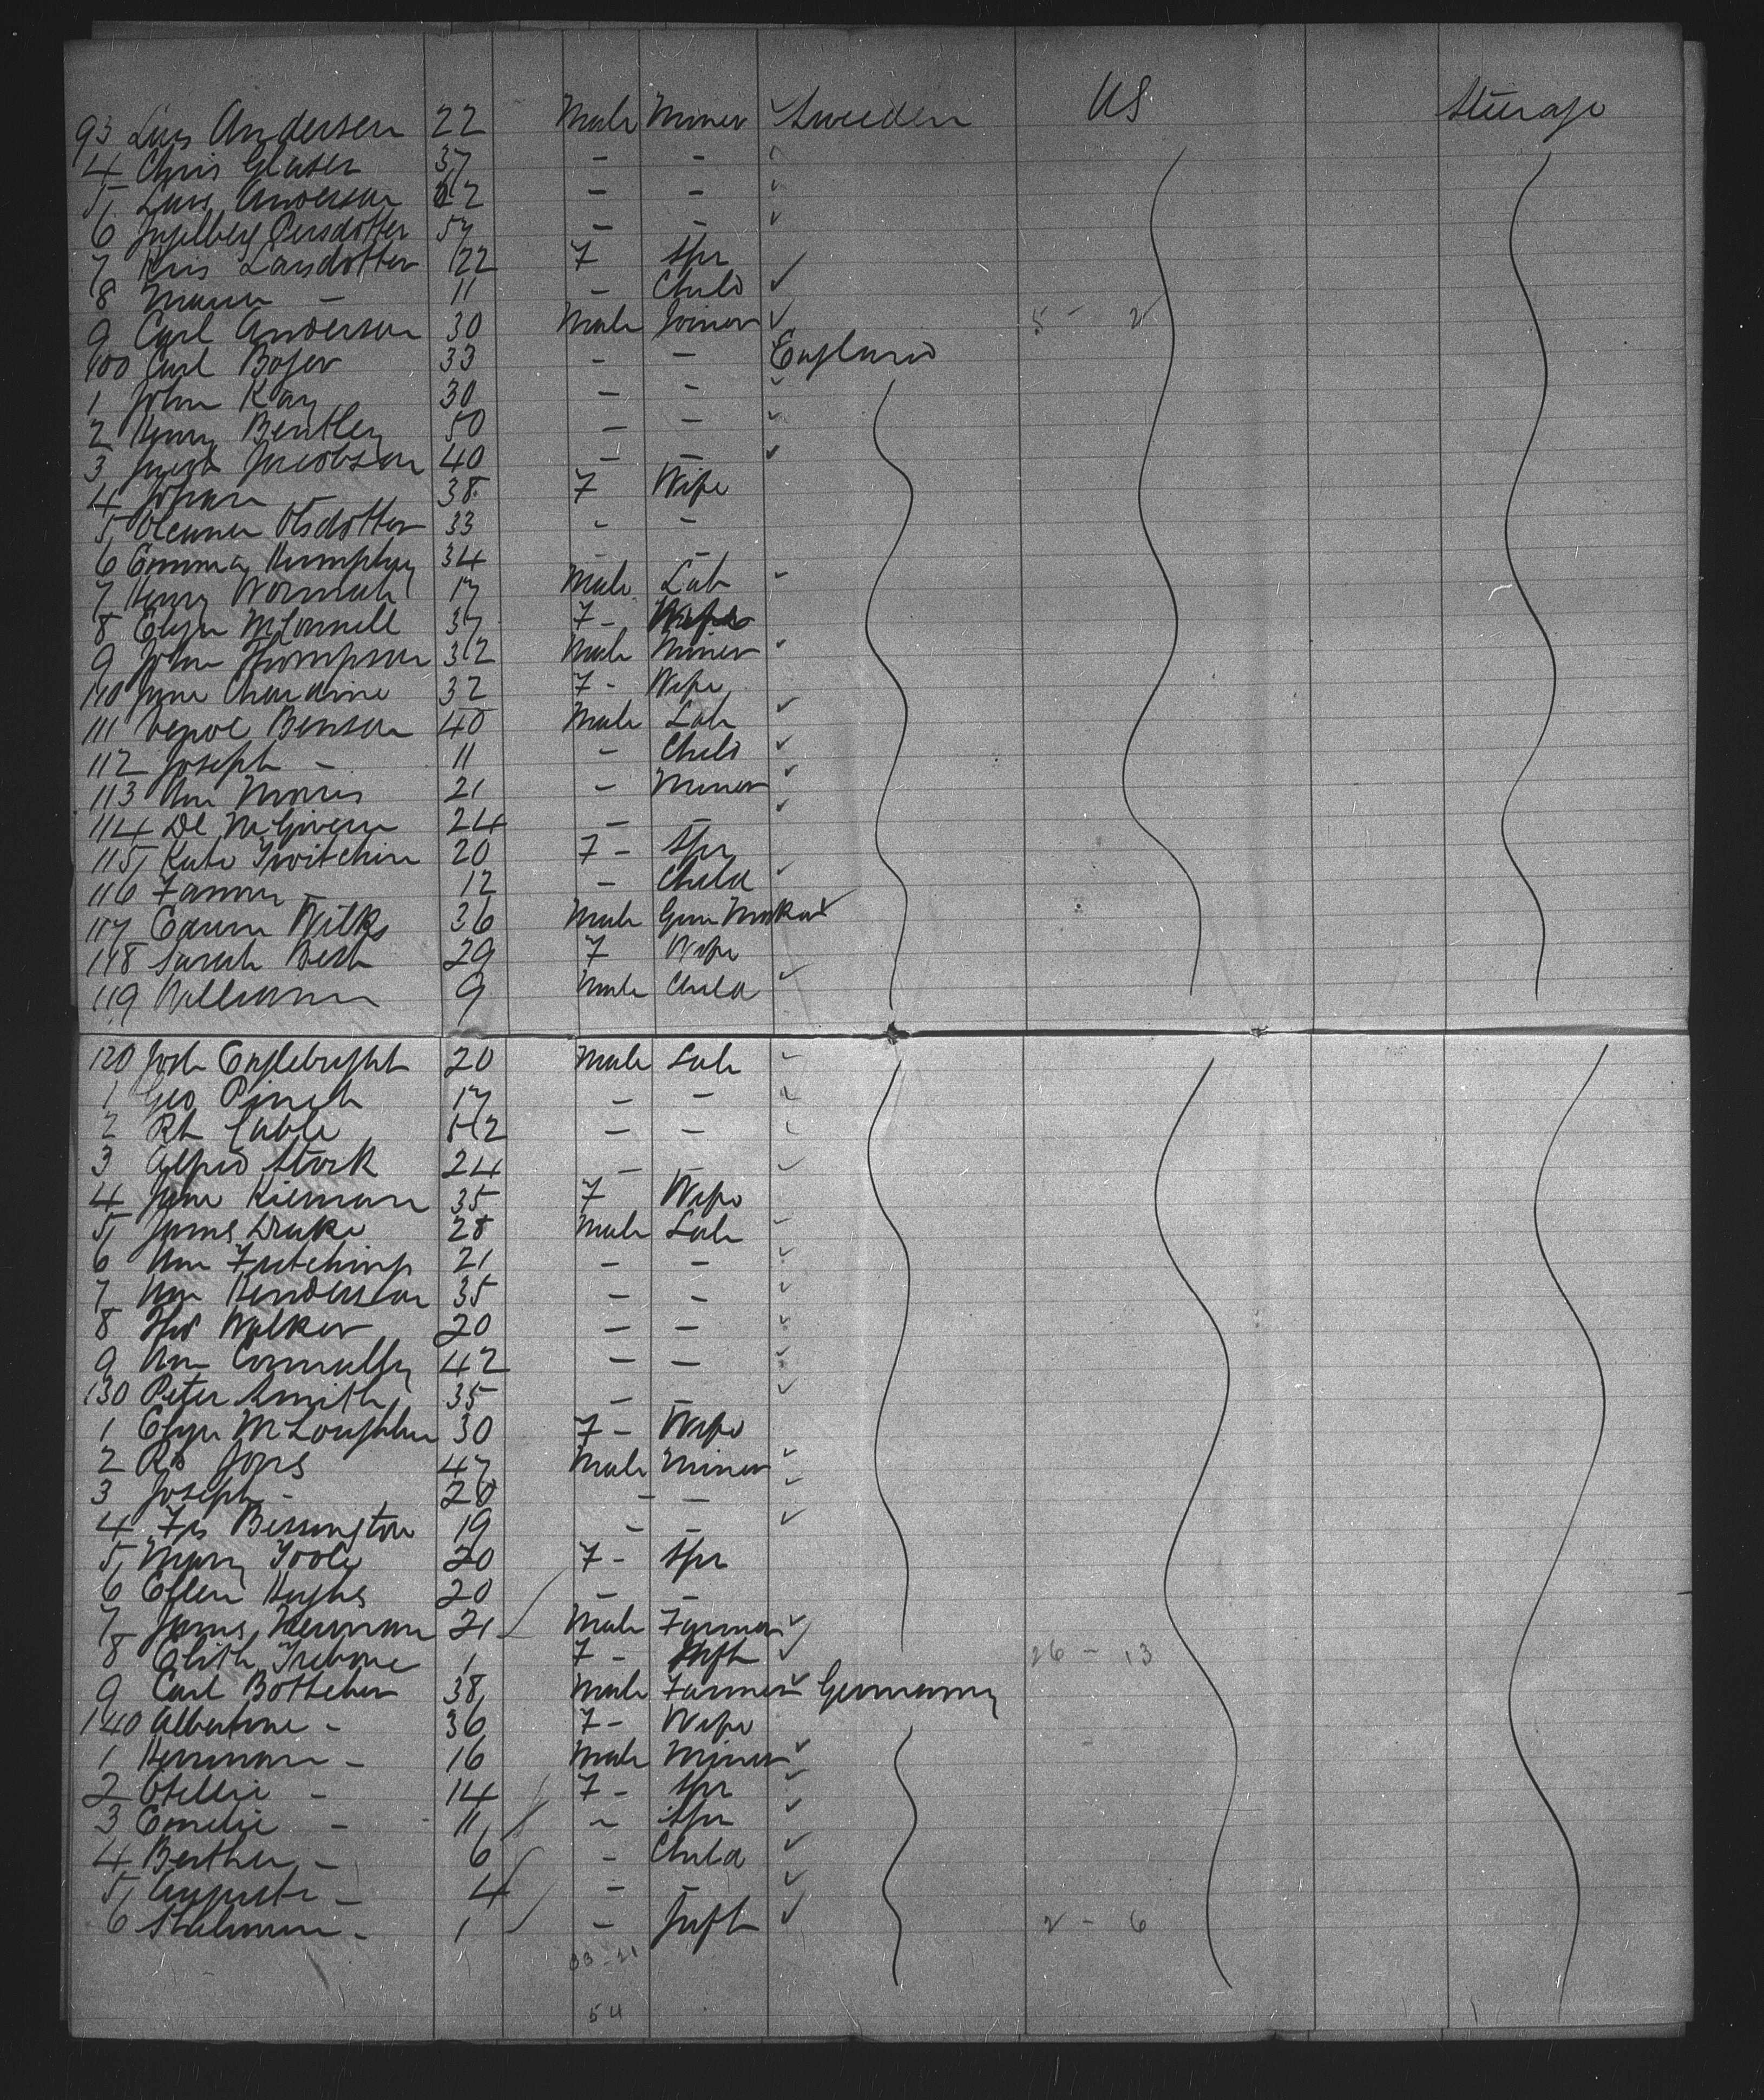 93 Lars Andersen 22 Male Miner Sweden US Steerage
4 Chris Glaser 37 - -
5 Lars Anderson 22 - -
6 Persdotter 57 - -
7 Larsdotter 22 F Spr
8 - 11 - Child
9 Carl Anderson 30 Male Joiner 5 - 2
100 Carl 33 - - England
1 John Kay 30 - -
2 Henry Bentley 50 - -
3 Jacob Jacobson 40 - -
4 Johan 38 F Wife
5 Olsdotter 33 - -
6 Emma Humphry 34 - -
7 Henry 17 Male Lab
8 McConnell 37 F - Wife
9 John Thompson 32 Male Miner
110 Jane 32 F - Wife
111 Benson 40 Male Lab
112 Joseph - 11 - Child
113 Wm Morris 21 - Miner
114 Dl McGivern 24 - -
115 Kate Twitchin 20 F - Spr
116 Fanny - 12 - Child
117 Wilks 36 Male Gun Maker
118 Sarah Best 29 F Wife
119 William 9 Male Child
120 Jos Englebright 20 Male Lab
1 Geo Pinch 17 - -
2 Rt Cable 52 - -
3 Alfred Stork 24 - -
4 Jane Kiernan 35 F Wife
5 James Drake 28 Male Lab
6 Wm 21 - -
7 Wm Henderson 35 - -
8 Walker 20 - -
9 Wm Connolly 42 - -
130 Peter Smith 35 - -
1 McLoughlin 30 F - Wife
2 Rt Jones 47 Male Miner
3 Joseph - 20 - -
4 Fs Bessington 19 - -
5 Mary Toole 20 F - Spr
6 Ellen Hughs 20 - -
7 James 21 Male Farmer
8 1 F - Inft 26 - 13
9 Carl Bottcher 38 Male Farmer Germany
140 Albertine - 36 F - Wife
1 Hermann - 16 Male Miner
2 Otellie - 14 F - Spr
3 Emelie - 11 - Spr
4 Bertha - 6 - Child
5 Auguste - 4 - -
6 - 1 - Inft 2 - 6
33 - 21
54